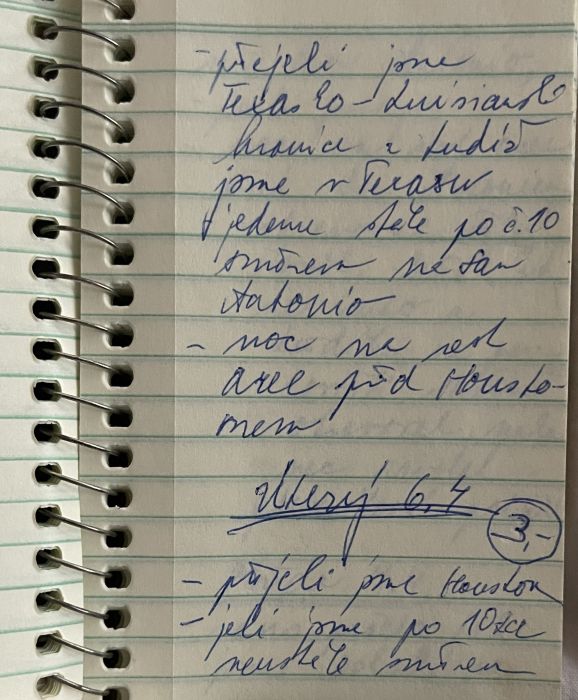 - přejeli jsme
Texasko-Luisianskō
hranice a tudíž
jsme v Texasu
jedeme stále po č.10
směrem na San
Antonio
- noc na rest
aree před Housto-
nem
Úterý 6.4
3,-
- přijeli jsme Houston
- jeli jsme po 10tce
neustále směrem